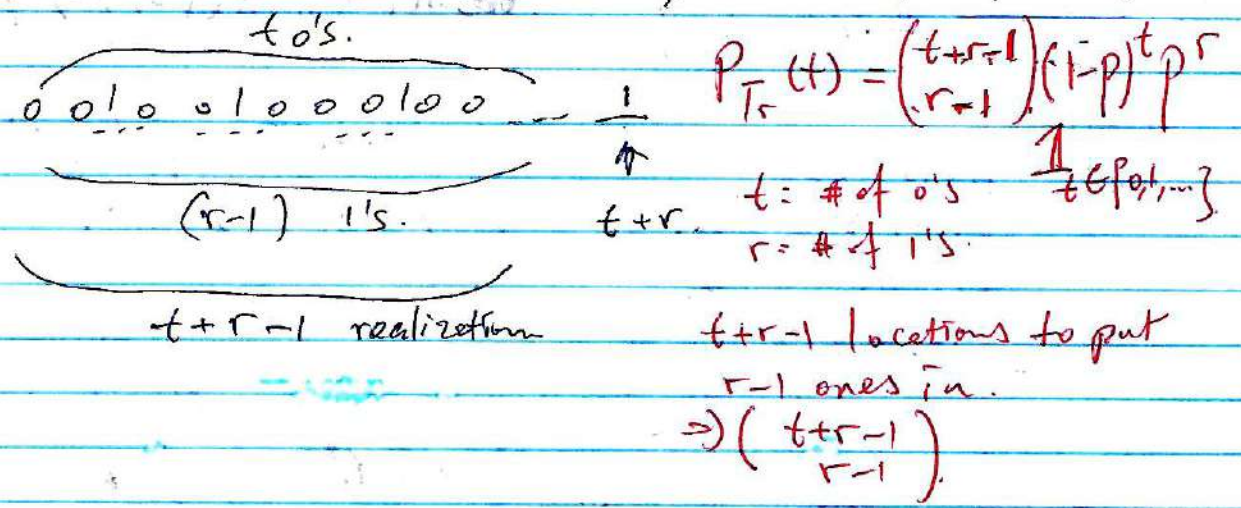 t 0's.
0 0 1 0 0 1 0 0 0 0 1 0 0 --- 1
(r-1) 1's.
t+r.
t+r-1 realization
P_{T_r}(t) = \binom{t+r-1}{r-1}(1-p)^t p^r
1_{t∈{0,1,...}}
t: # of 0's
r= # of 1's.
t+r-1 locations to put
r-1 ones in.
⇒ \binom{t+r-1}{r-1}.